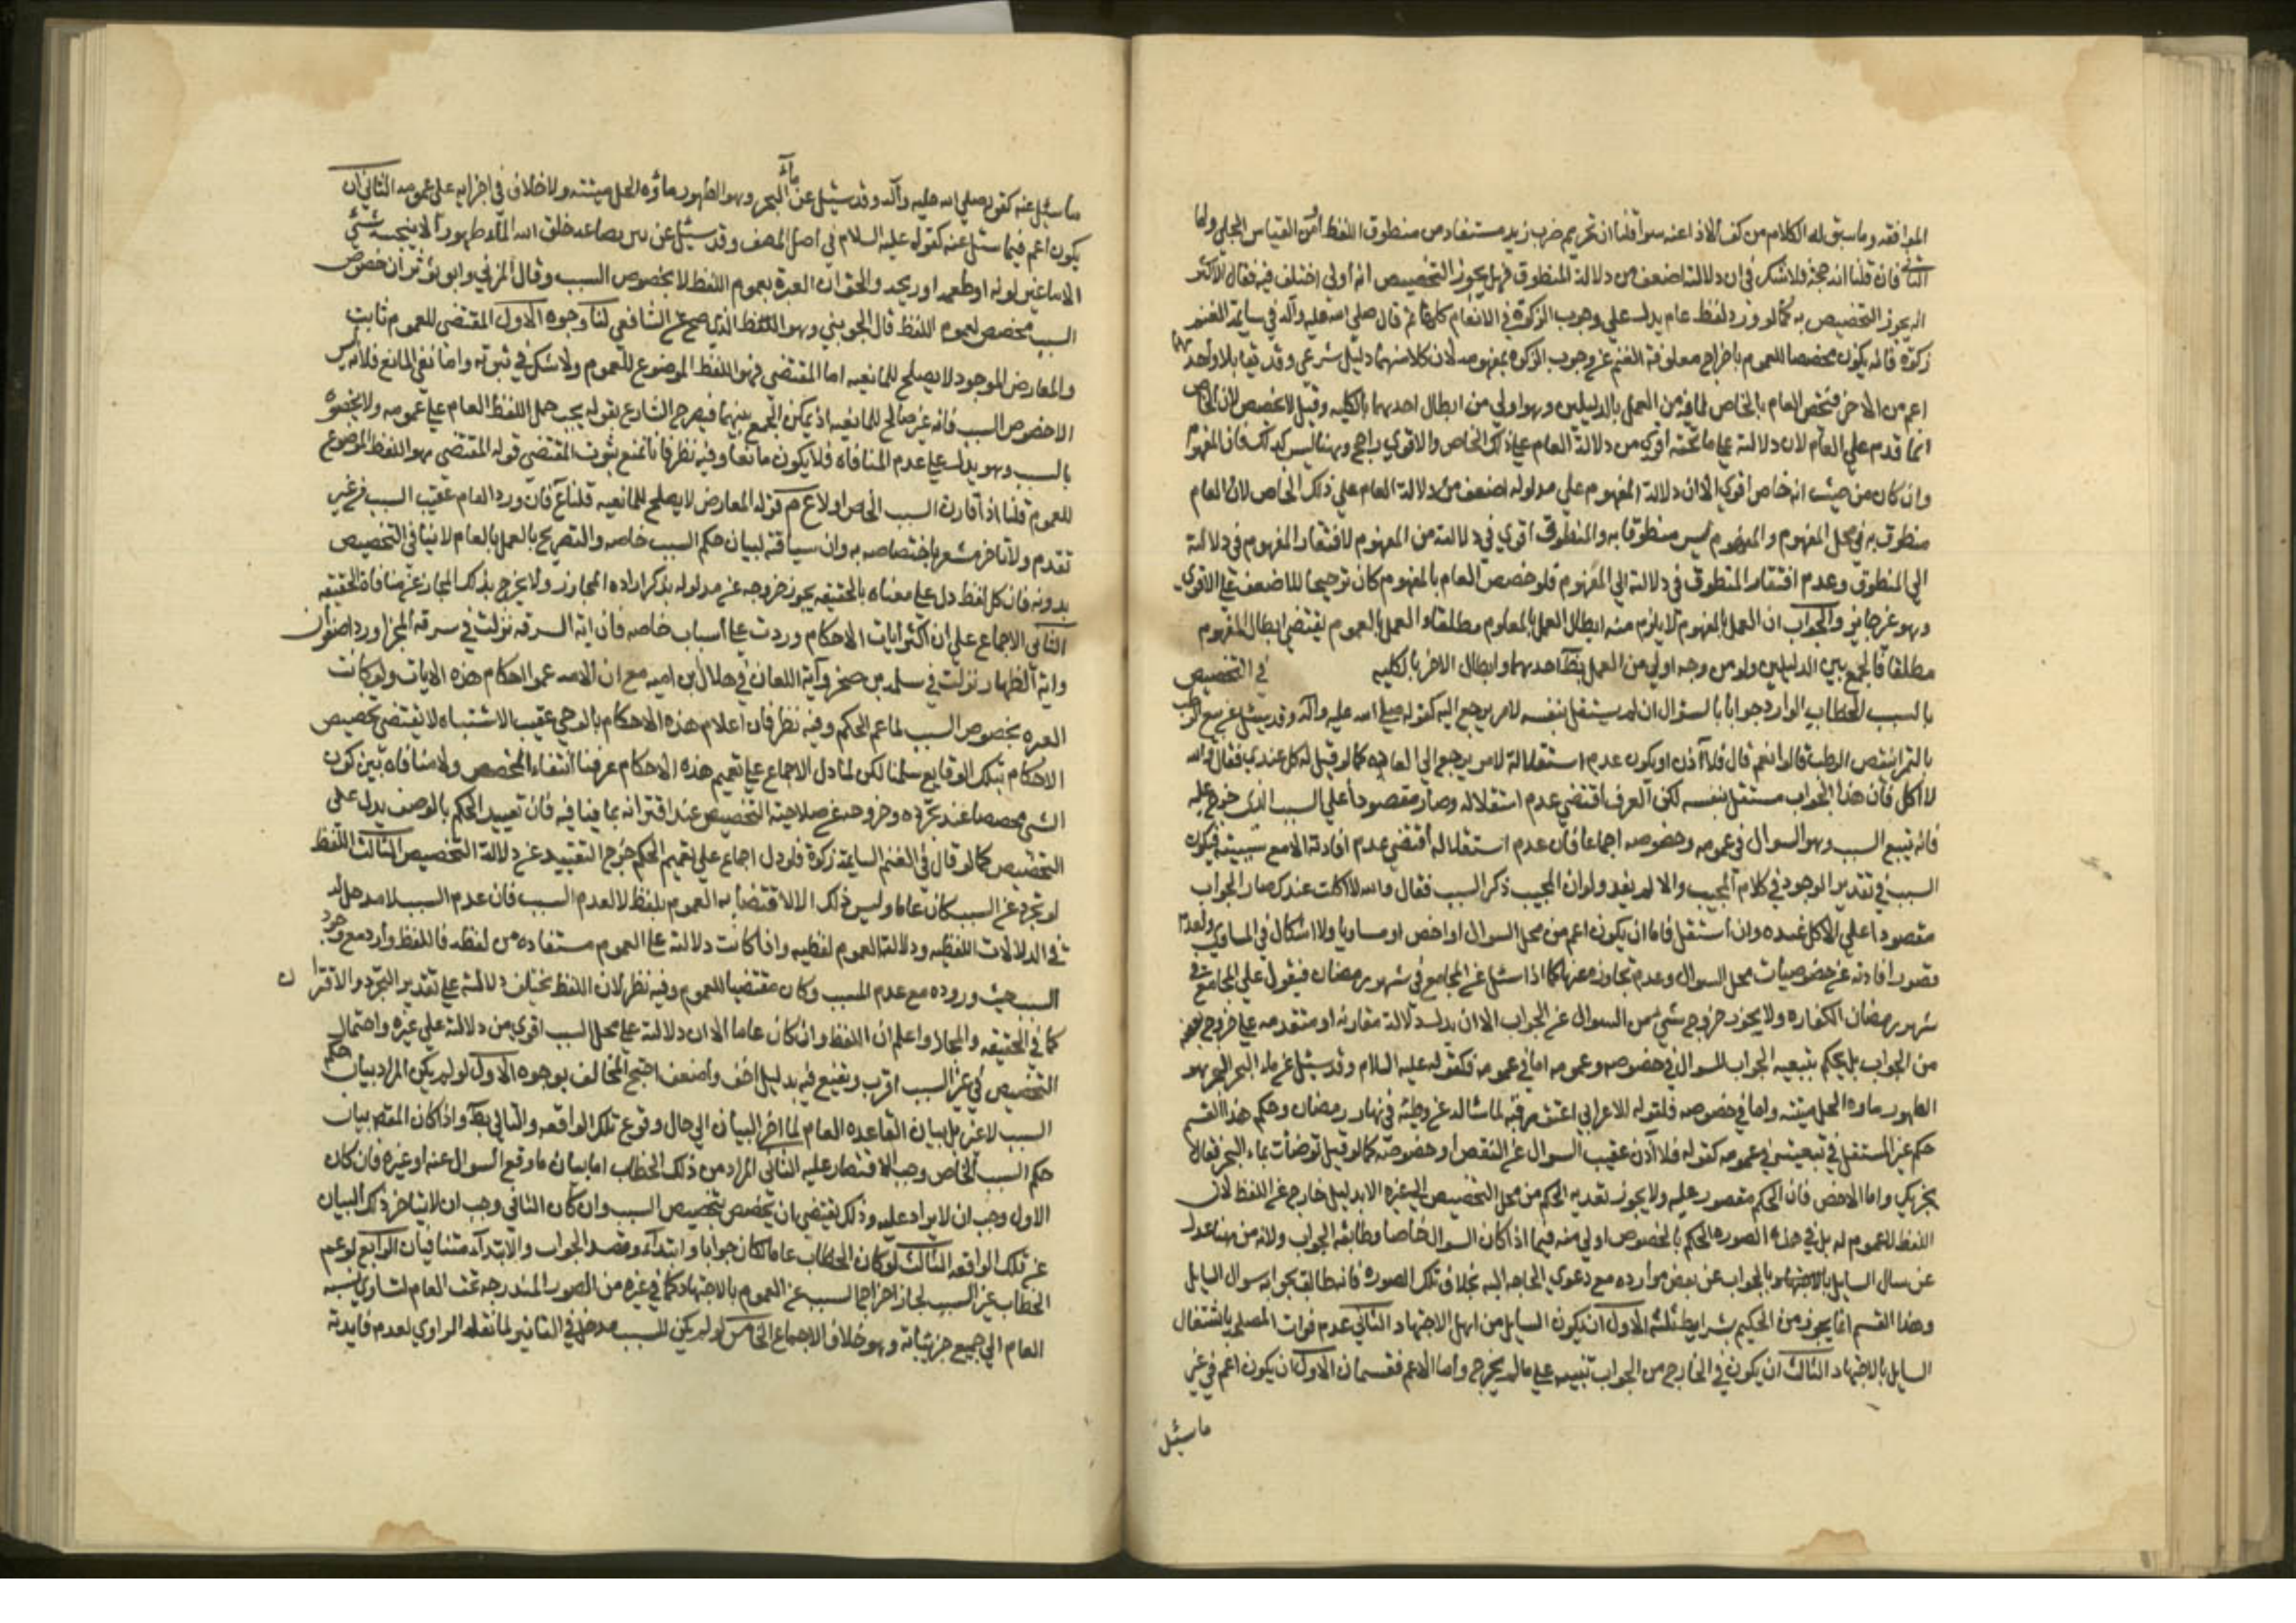 الموافقه وما سبق له الكلام من كف الاذا عنه سوآ قلنا ان تحريم ضرب زيد مستفاد من منطوق اللفظ او من القياس الجلي واما
الثاني فان قلنا انه حجة فلا شك في ان دلالته اضعف من دلالة المنطوق فهل يجوز التخصيص به ام لا اختلف فيه فقال الاكثر
انه يجوز التخصيص به كما لو ورد لفظ عام يدل علي وجوب الزكوة في الانعام كلها ثم قال صلي الله عليه وآله في سايمة الغنم
زكوة فانه يكون مخصصا للعموم باخراج معلوفة الغنم عن وجوب الزكوة بمفهومه لان كلا منهما دليل شرعي وقد تقابلا واحدهما
اعم من الاخر فنخص العام بالخاص لما فيه من العمل بالدليلين وهو اولي من ابطال احدهما بالكليه وقيل لا يخصص لان الخاص
انما قدم علي العام لان دلالته علي ما تحته اقوي من دلالة العام علي ذلك الخاص والاقوي راجح وهنا ليس كذلك فان المفهوم
وان كان من حيث انه خاص اقوي الا ان دلالة المفهوم علي مدلوله اضعف من دلالة العام علي ذلك الخاص لان العام
منطوق به في محل المفهوم والمفهوم ليس منطوقا به والمنطوق اقوي في دلالته من المفهوم لافتقار المفهوم في دلالته
الي المنطوق وعدم افتقار المنطوق في دلالته الي المفهوم فلو خصص العام بالمفهوم كان ترجيحا للاضعف علي الاقوي
وهو غير جايز والجواب ان العمل بالمفهوم لا يلزم منه ابطال العمل بالعموم مطلقا والعمل بالعموم يقتضي ابطال المفهوم
مطلقا فالجمع بين الدليلين ولو من وجه اولي من العمل بظ احدهما وابطال الاخر بالكليه في التخصيص
بالسبب الخطاب الوارد جوابا بالسؤال ان لم يستقل بنفسه لامر يرجع اليه كقوله صلي الله عليه وآله وقد سئل عن بيع الرطب
بالتمر اينقص الرطب قالوا نعم قال فلا آذن او يكون عدم استقلاله لامر يرجع الي العاده كما لو قيل له كل عندي فقال والله
لا اكل فان هذا الجواب مستقل بنفسه لكن العرف اقتضي عدم استقلاله وصار مقصودا علي السبب الذي خرج عليه
فانه تتبع السبب وهو السوال في عمومه وخصوصه اجماعا فان عدم استقلاله اقتضي عدم افادته الا مع سببيته فيكون
السبب في تقدير الموجود في كلام المجيب والا لم يفد ولو ان المجيب ذكر السبب فقال والله لا اكلت عندك صار الجواب
مقصودا علي الاكل عنده وان استقل فاما ان يكون اعم من محل السوال او اخص او مساويا ولا اشكال في المساوي ولعدم
قصور افادته عن خصوصيات محل السوال وعدم تجاوزه عنها كما اذا سئل عن المجامع في شهر رمضان فيقول علي المجامع في
شهر رمضان الكفاره ولا يجوز خروج شئ من السوال عن الجواب الا ان يدل دلالة مقارنة او متقدمه علي خروج
من الجواب بل يحكم بتبعيه الجواب للسوال في خصوصه وعمومه اما في عمومه فكقوله عليه السلام وقد سئل عن ماء البحر البحر هو
الطهور ماوه الحل ميتته واما في خصوصه فلقوله للاعرابي اعتق رقبة لما ساله عن وطئه في نهار رمضان وحكم هذا القسم
حكم غير المستقل في تبعيته في عمومه كقوله فلا آذن عقيب السوال عن النقص او خصوصه كما لو قيل توضات بماء البحر فقال
يجزيك واما الاخص فان الحكم مقصور عليه ولا يجوز تعديه الحكم من محل التخصيص الي غيره الا بدليل خارج عن اللفظ لان
اللفظ لا عموم له بل في هذه الصوره الحكم بالخصوص اولي منه فيما اذا كان السوال خاصا وطابقه الجواب ولانه من هنا عدل
عن سال السايل بالاجتهاد بالجواب عن بعض موارده مع دعوي الحاجه اليه بخلاف تلك الصوره فانه طابق بجوابه سوال السايل
وهذا القسم انما يجوز من الحكيم بشرايط ثلثة الاول ان يكون السايل من اهل الاجتهاد الثاني عدم فوات المصلحه باشتغال
السايل بالاجتهاد الثالث ان يكون في الخارج من الجواب تنبيه علي ما لم يخرج واما الاعم فقسمان الاول ان يكون اعم في غير
ما سئل
ما سئل عنه كقوله صلي الله عليه وآله وقد سئيل عن ماء البحر وهو الطهور ماؤه الحل ميتته ولا خلاف في اجرايه علي عمومه الثاني ان
يكون اعم فيما سئل عنه كقوله عليه السلام في اصل المصنف وقد سئيل عن بير بضاعه خلق الله المآء طهورا لا ينجسه شئ
الا ما غير لونه او طعمه او ريحه والحق ان العبرة بعموم اللفظ لا بخصوص السبب وقال المزني وابو ثور ان خصوص
السبب مخصص لعموم اللفظ قال الجويني وهو اللفظ الذي صح عن الشافعي لنا وجوه الاول المقتضي للعموم ثابت
والمعارض الموجود لا يصلح للمانعيه اما المقتضي فهو اللفظ الموضوع للعموم ولا شك في ثبوته واما نفي المانع فلانه ليس
الا خصوص السبب فانه غير صالح للمانعيه اذ يمكن الجمع بينهما فيصرح الشارع بقوله يجب حمل اللفظ العام علي عمومه ولا يخصوه
بالسبب وهو يدل علي عدم المنافاه فلا يكون مانعا وفيه نظر فانا نمنع ثبوت المقتضي قوله المقتضي هو اللفظ الموضوع
للعموم قلنا اذا قارن السبب الخاص اولا ع م قوله المعارض لا يصلح للمانعيه قلنا ع فان ورد العام عقيب السبب من غير
تقدم ولا تاخر مشعر باختصاصه به وان سياقته لبيان حكم السبب خاصه والتصريح بالعمل بالعام لا ينافي التخصيص
بدونه فان كل لفظ دل علي معناه بالحقيقه يجوز خروجه عن مدلوله بذكر اراده المجاز ولا يخرج بذلك المجاز عن منافاة الحقيقه
الثاني الاجماع علي ان اكثر ايات الاحكام وردت علي اسباب خاصه فان اية السرقه نزلت في سرقه المجن او رداء صفوان
واية الظهار نزلت في سلمه بن صخر وآية اللعان في هلال بن اميه مع ان الامه عمموا احكام هذه الايات ولو كانت
العبره بخصوص السبب لما عم الحكم وفيه نظر فان اعلام هذه الاحكام بالوحي عقيب الاشتباه لا يقتضي تخصيص
الاحكام بتلك الوقايع سلمنا لكن لما دل الاجماع علي تعميم هذه الاحكام عرفنا انتفاء المخصص ولا منافاه بين كون
الشي مخصصا عند تجرده وخروجه عن صلاحية التخصيص عند اقترانه بما ينافيه فان تقييد الحكم بالوصف يدل علي
التخصيص كما لو قال في الغنم السايمة زكوة فلو دل اجماع علي تعميم الحكم خرج التقييد عن دلالة التخصيص الثالث اللفظ
لو تجرد عن السبب كان عاما وليس ذلك الا لاقتضايه العموم بلفظه لا لعدم السبب فان عدم السبب لا مدخل له
في الدلالات اللفظيه ودلالة العموم لفظيه واذا كانت دلالته علي العموم مستفاده من لفظه فاللفظ وارد مع وجود
السبب حيث وروده مع عدم السبب وكان مقتضيا للعموم وفيه نظر لان اللفظ يختلف دلالته علي تقدير التجرد والاقتران
كما في الحقيقه والمجاز واعلم ان اللفظ وان كان عاما الا ان دلالته علي محل السبب اقوي من دلالته علي غيره واحتمال
التخصيص في غير السبب اقرب ويقنع فيه بدليل اخف واضعف احتج المخالف بوجوه الاول لو لم يكن المراد بيان حكم
السبب لا غير بل بيان القاعده العام لما اخر البيان الي حال وقوع تلك الواقعه والتالي بط واذا كان المقصود بيان
حكم السبب الخاص وجب الاقتصار عليه الثاني المراد من ذلك الخطاب اما بيان ما وقع السوال عنه او غيره فان كان
الاول وجب ان لا يزاد عليه وذلك يقتضي ان يتخصص بتخصيص السبب وان كان الثاني وجب ان لا يتاخر ذلك البيان
عن تلك الواقعه الثالث لو كان الخطاب عاما لكان جوابا وابتداء وقصد الجواب والابتدآء متنافيان الرابع لو عم
الخطاب غير السبب لجاز اخراج السبب عن العموم بالاجتهاد كما في غيره من الصور المندرجه تحت العام لتساوي نسبه
العام الي جميع جزئياته وهو خلاف الاجماع الخامس لو لم يكن للسبب مدخل في التاثير لما نقله الراوي لعدم فايدته